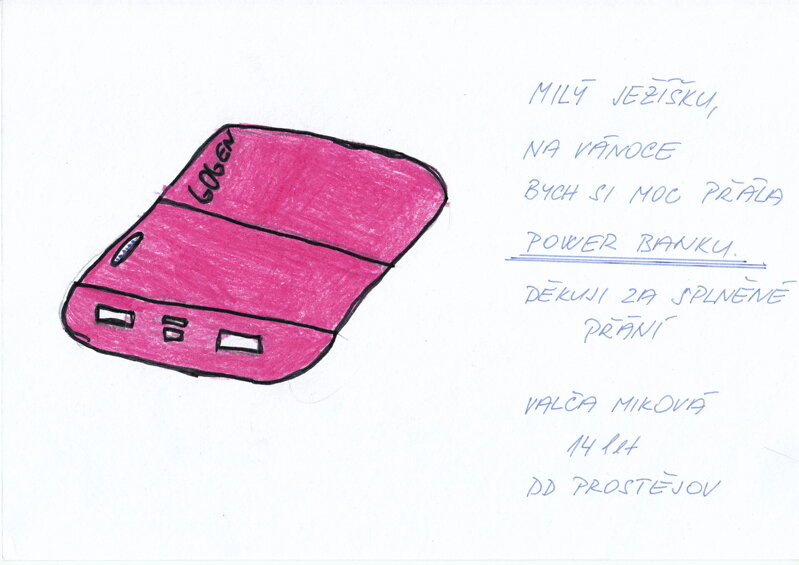 GOGEN
MILÝ JEŽÍŠKU,
NA VÁNOCE
BYCH SI MOC PŘÁLA
POWER BANKU.
DĚKUJI ZA SPLNĚNÉ
PŘÁNÍ
VALČA MIKOVÁ
14 let
DD PROSTĚJOV